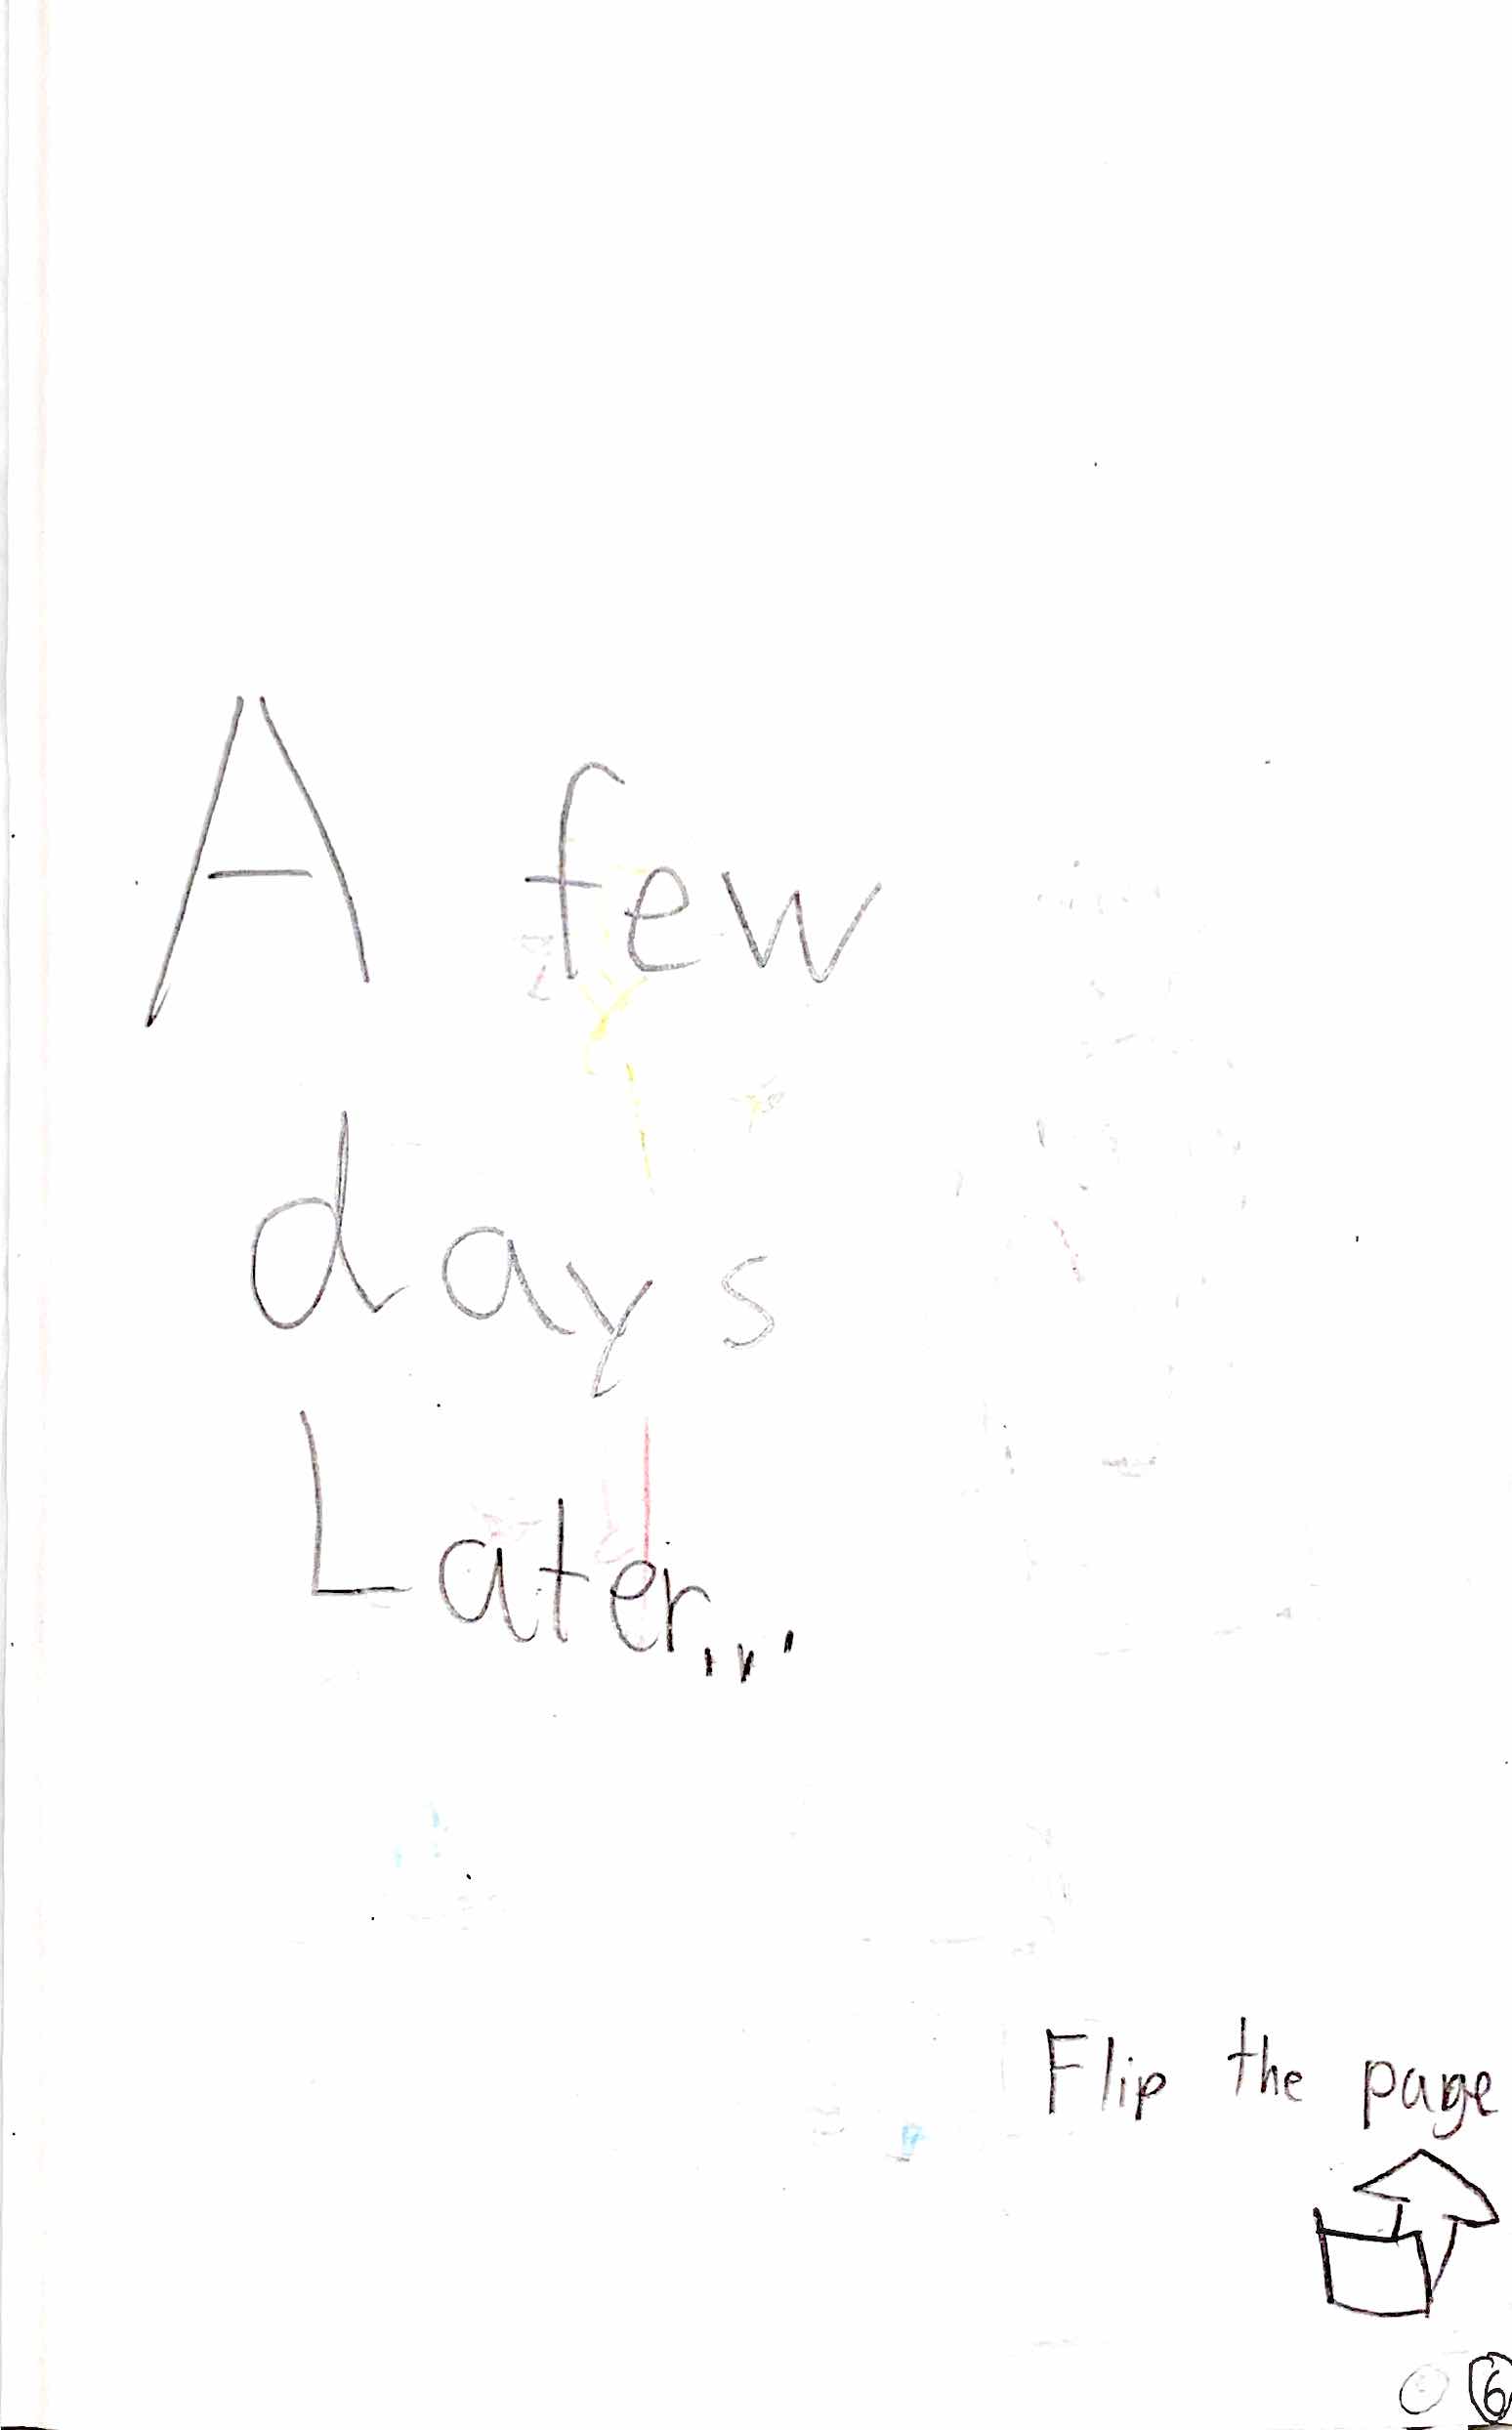 A few
days
Later...
Flip the page
6